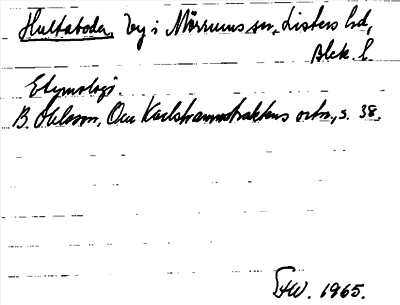 Hultaboda, by i Mörrums sn, Listers hd,
Blek. l.
Etymologi.
B. Ohlsson, Om Karlshamnstraktens ortn., s. 38.
FW. 1965.